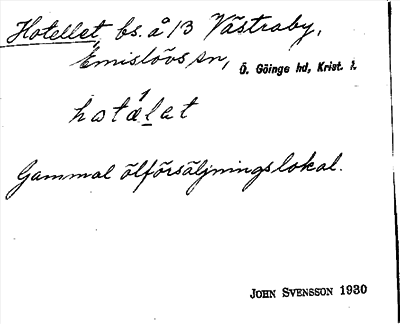 Hotellet, bs. å 13 Västraby,
Emislövs sn, Ö. Göinge hd, Krist. l.
hotælat
Gammal ölförsäljningslokal.
JOHN SVENSSON 1930